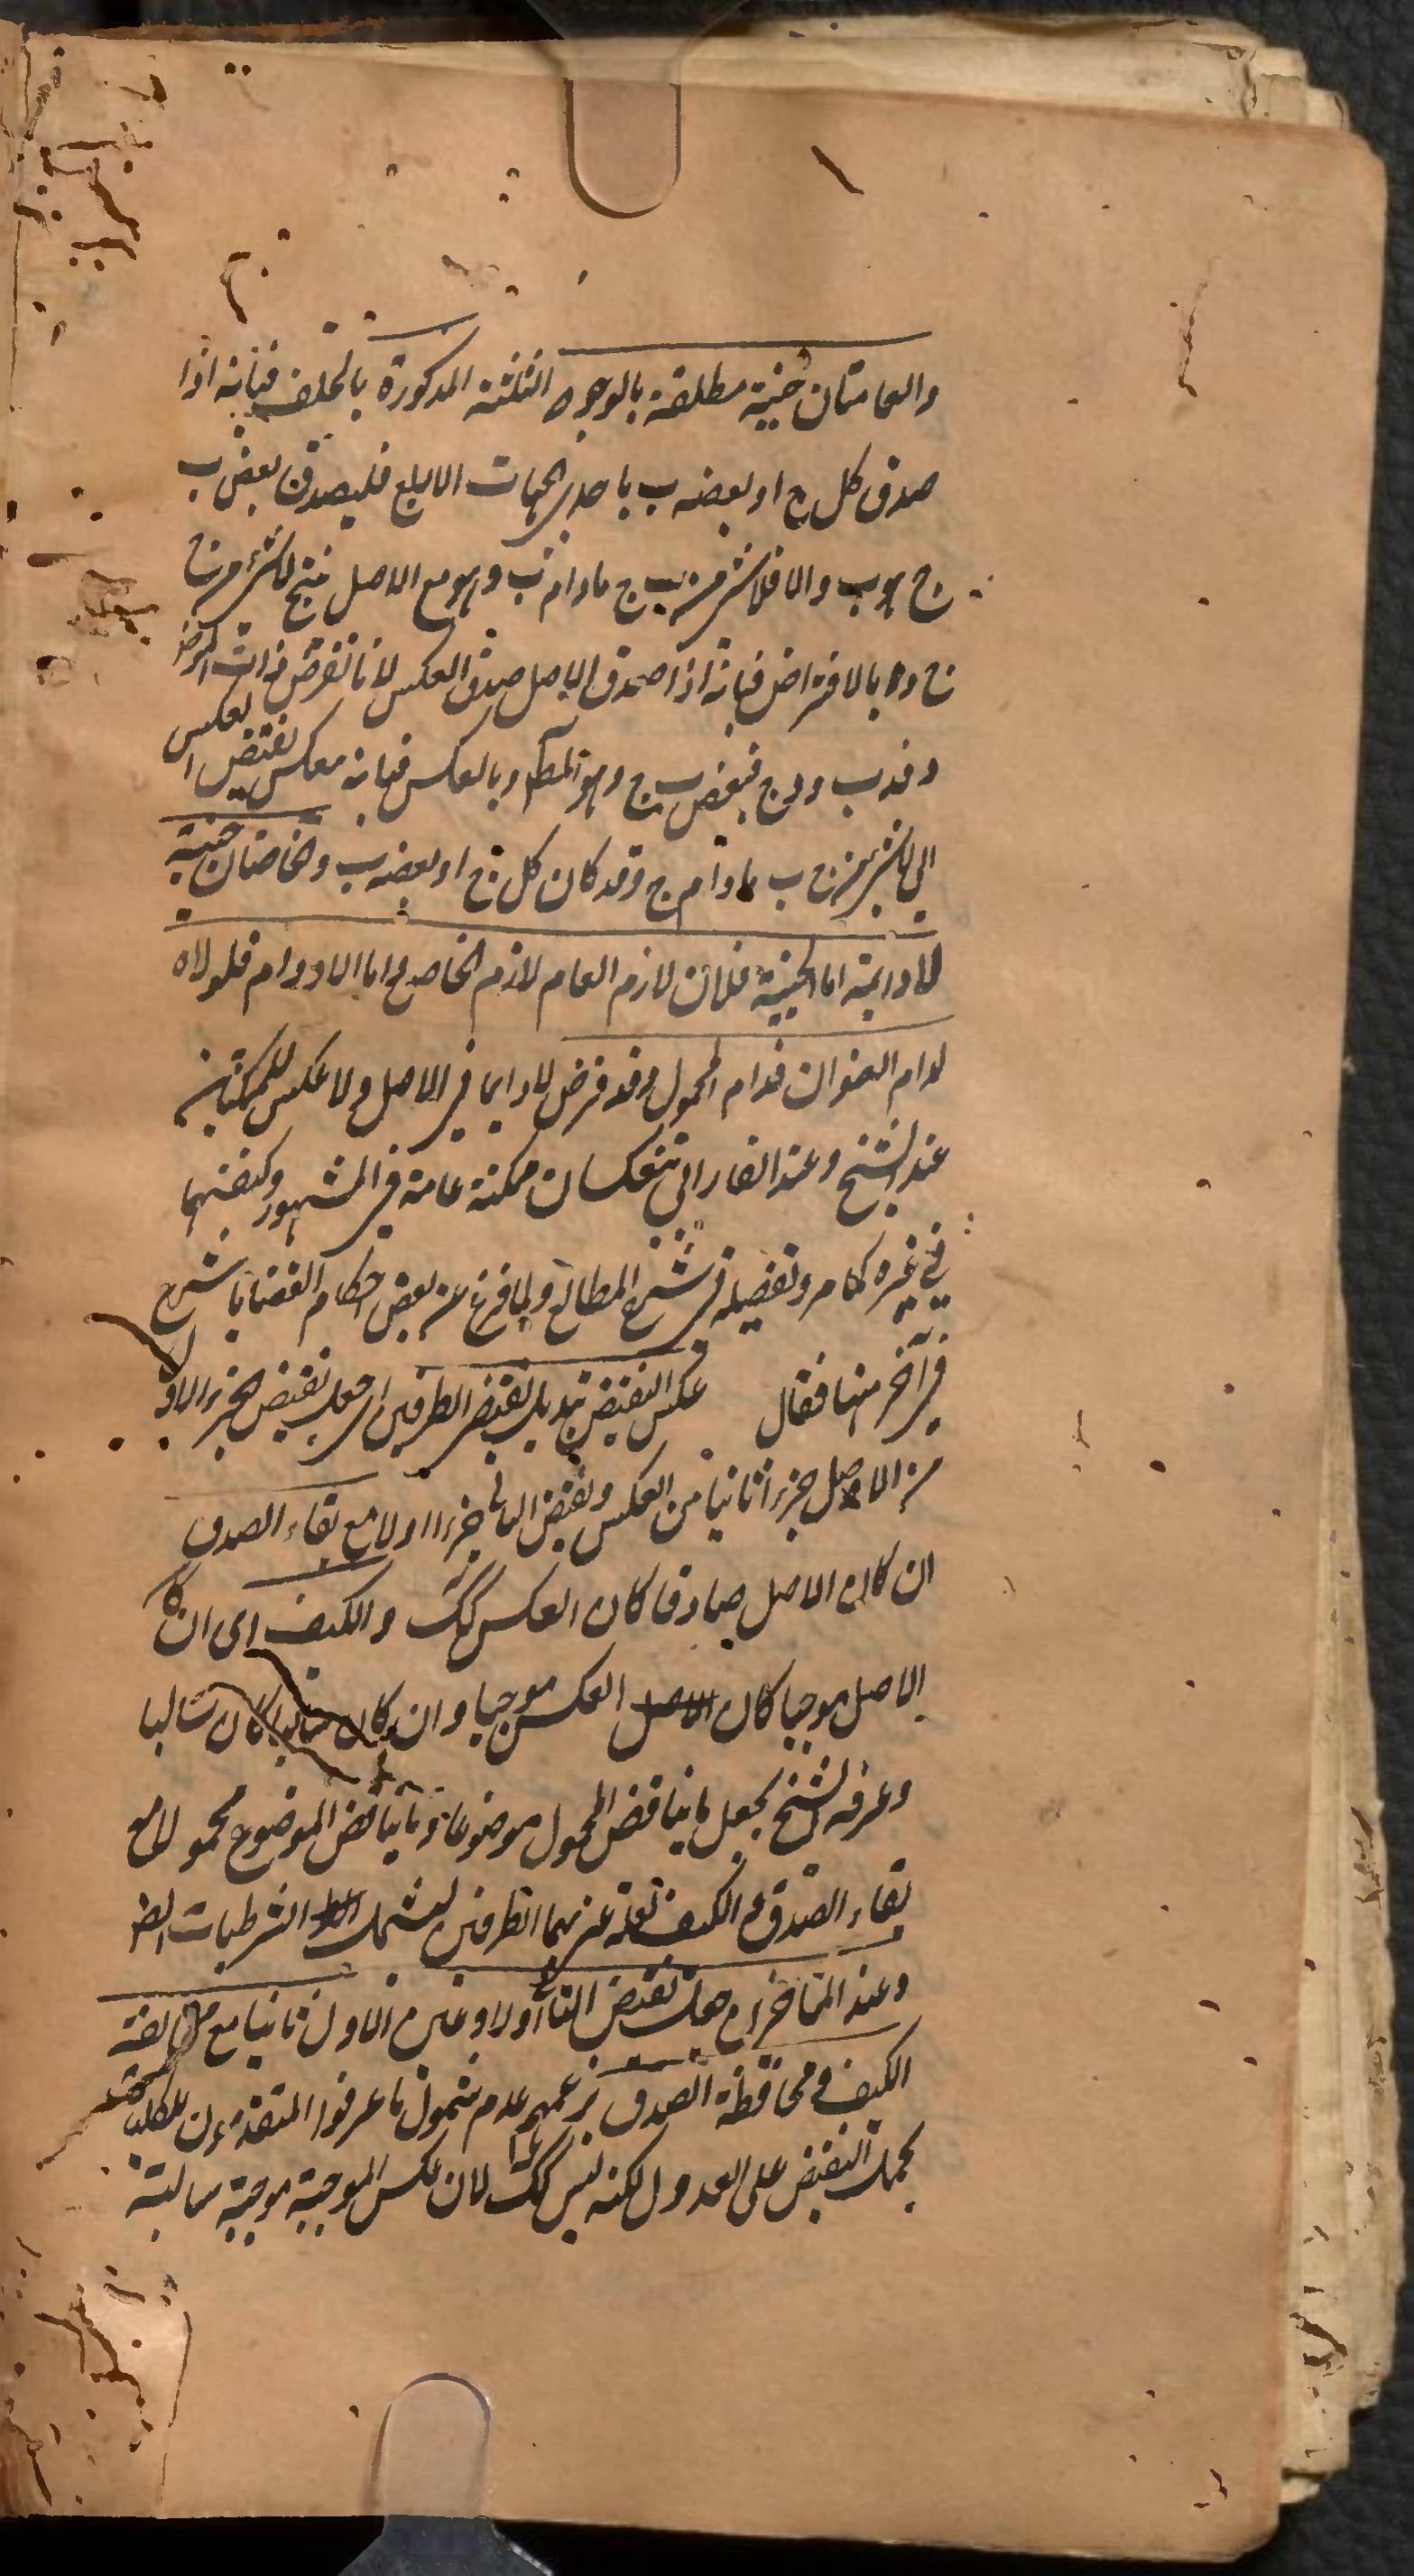 والعامتان حينية مطلقة بالوجوه الثلثة المذكورة بالخلف فبانه اذا
صدق كل ج او بعضه ب باحدى الجهات الاربع فليصدق بعض ب
ج هو ب والا فلا شئ من ب ج مادام ب وهو مع الاصل ينتج لا شئ من ج
ج واما بالافتراض فبانه اذا صدق الاصل صدق العكس لانا نفرض ذات الموضوع
د فد ب و د ج فبعض ب ج وهو المط وبالعكس فبانه ينعكس نقيض العكس
الى لا شئ من ج ب مادام ج وقد كان كل ج او بعضه ب والخاصتان حينية
لا دائمة اما الحينية فلان لازم العام لازم الخاص واما اللادوام فلولاه
لدام العنوان فدام المحمول وقد فرض لا دائما في الاصل ولا عكس للممكنتين
عند الشيخ وعند الفارابي تنعكسان ممكنة عامة في المشهور وكيفيتهما
في غيره كما مر وتفصيله في شرح المطالع ولما فرغ عن بعض احكام القضايا شرع
في آخر منها فقال عكس النقيض تبديل نقيض الطرفين اى جعل نقيض الجزء الاول
من الاصل جزءا ثانيا من العكس ونقيض الثانى جزءا اولا مع بقاء الصدق
ان كان الاصل صادقا كان العكس كك والكيف اى ان كان
الاصل موجبا كان العكس موجبا وان كان سالبا كان سالبا
وعرفه الشيخ بجعل ما يناقض المحمول موضوعا وما يناقض الموضوع محمولا مع
بقاء الصدق والكيف نعم عبر بهما الطرفين ليشمل الشرطيات ايضا
وعند المتاخرين جعل نقيض الثانى اولا وعين الاول ثانيا مع مخالفة
الكيف ومحافظة الصدق بزعمهم عدم شمول ما عرفوا المتقدمون للكلية
بحمل النقيض على العدول لكنه ليس كك لان عكس الموجبة موجبة سالبة